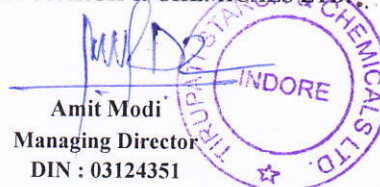 Amit Modi
Managing Director
DIN : 03124351
TIRUPATI STARCH & CHEMICALS LTD.
INDORE